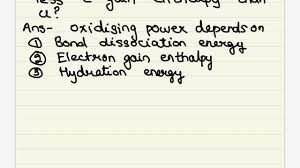 less e gain enthalpy than
Cl?
Ans- oxidising power depends on
① Bond dissociation energy
② Electron gain enthalpy
③ Hydration energy